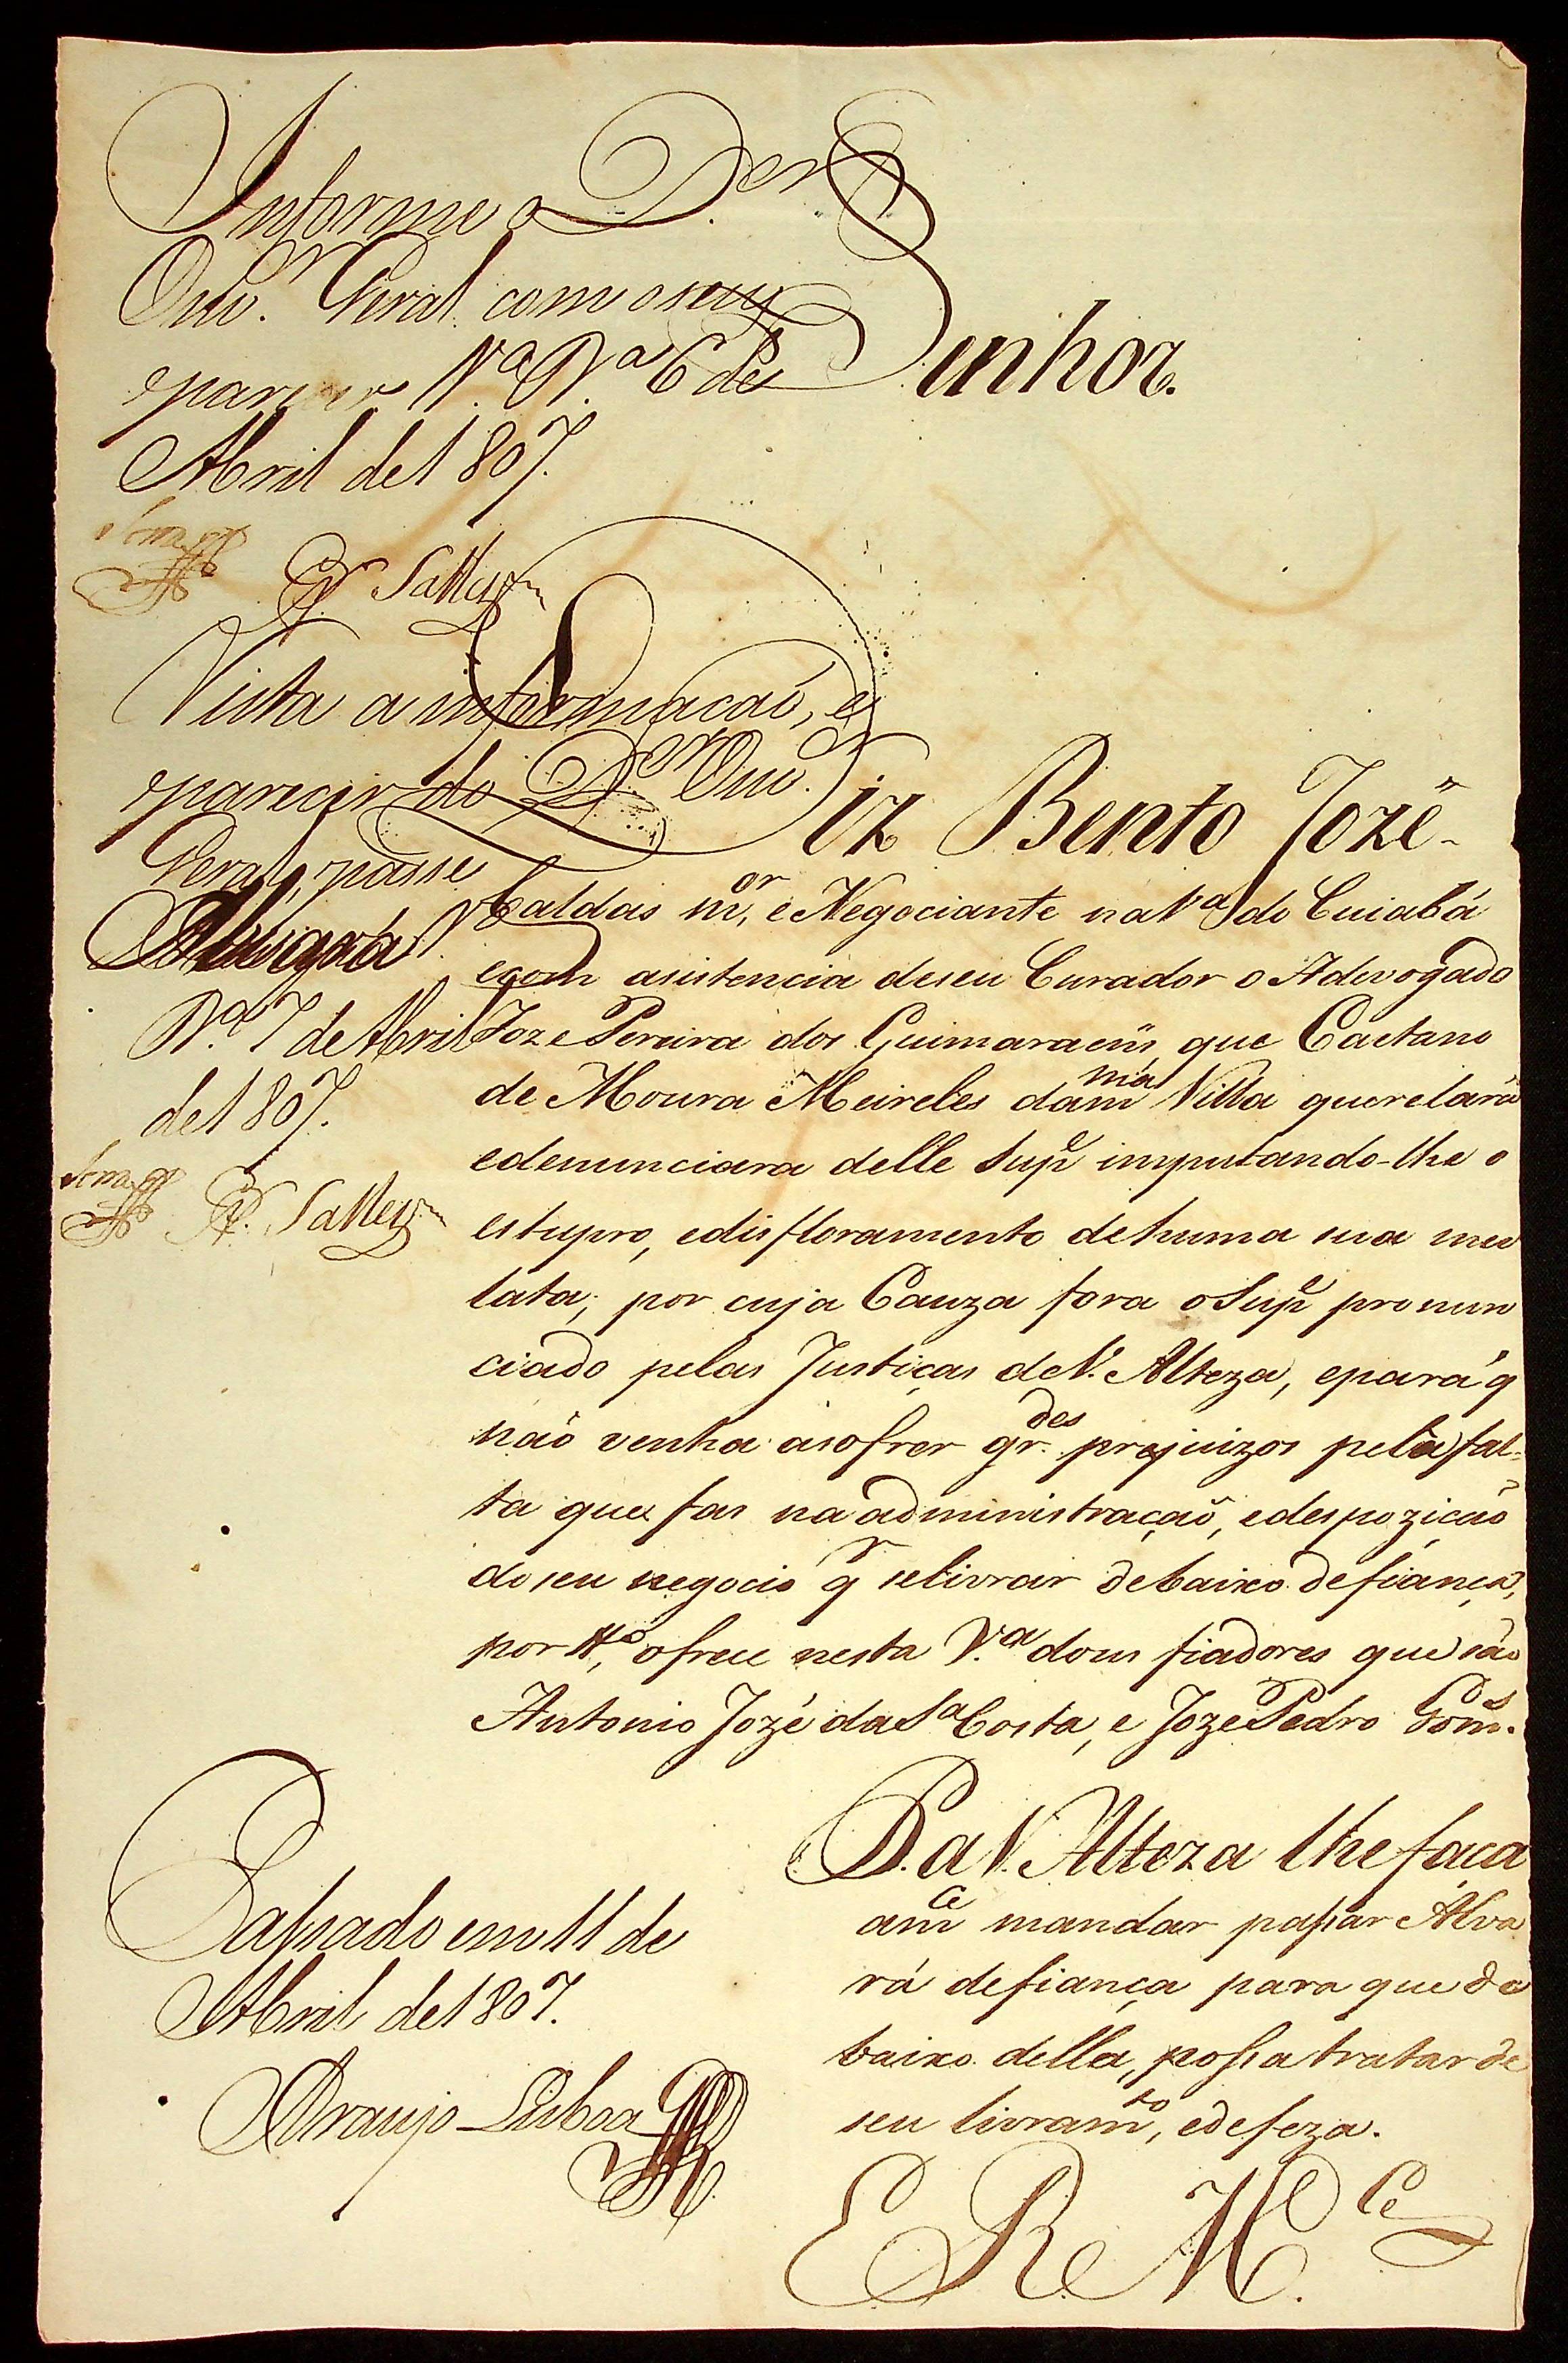 Informe o D.or
Ouv.or Geral com o seu
parecer V.a B.a 6 de
Abril de 1807.
Salles
Senhor.
Vista a informacaõ, e
parecer do D.or Ouv.or
Geral, passe
Alvará V.a
B.a 7 de Abril
de 1807.
Salles
Diz Bento Jozé
Caldas m.or, e Negociante na V.a do Cuiabá
ecom asistencia deseu Curador o Advogado
Joze Pereira dos Guimaraens, que Caetano
de Moura Meireles dam.ma Villa querelára
edenunciara delle Sup.e imputando-lhe o
estupro, edisfloramento dehuma sua mu
lata; por cuja Cauza fora oSup.e pronun
ciado pelas Justiças deV. Alteza, epará q
naõ venha asofrer gr.des prejuizos pela fal-
ta que fas na administraçaõ, edespoziçaõ
do seu negocio q.r selivrar debaixo defiança,
por tt.o, ofrece nesta V.a dous fiadores que saõ
Antonio Jozé da S.a Costa, e Joze Pedro Gom.s
P. a V. Alteza lhe faça
am.ce mandar passar Alva
rá defiança para que de
baixo della, possa tratar de
seu livram.to, edefeza.
E R M.ce
Passado em 11 de
Abril de 1807.
Araujo Lisboa